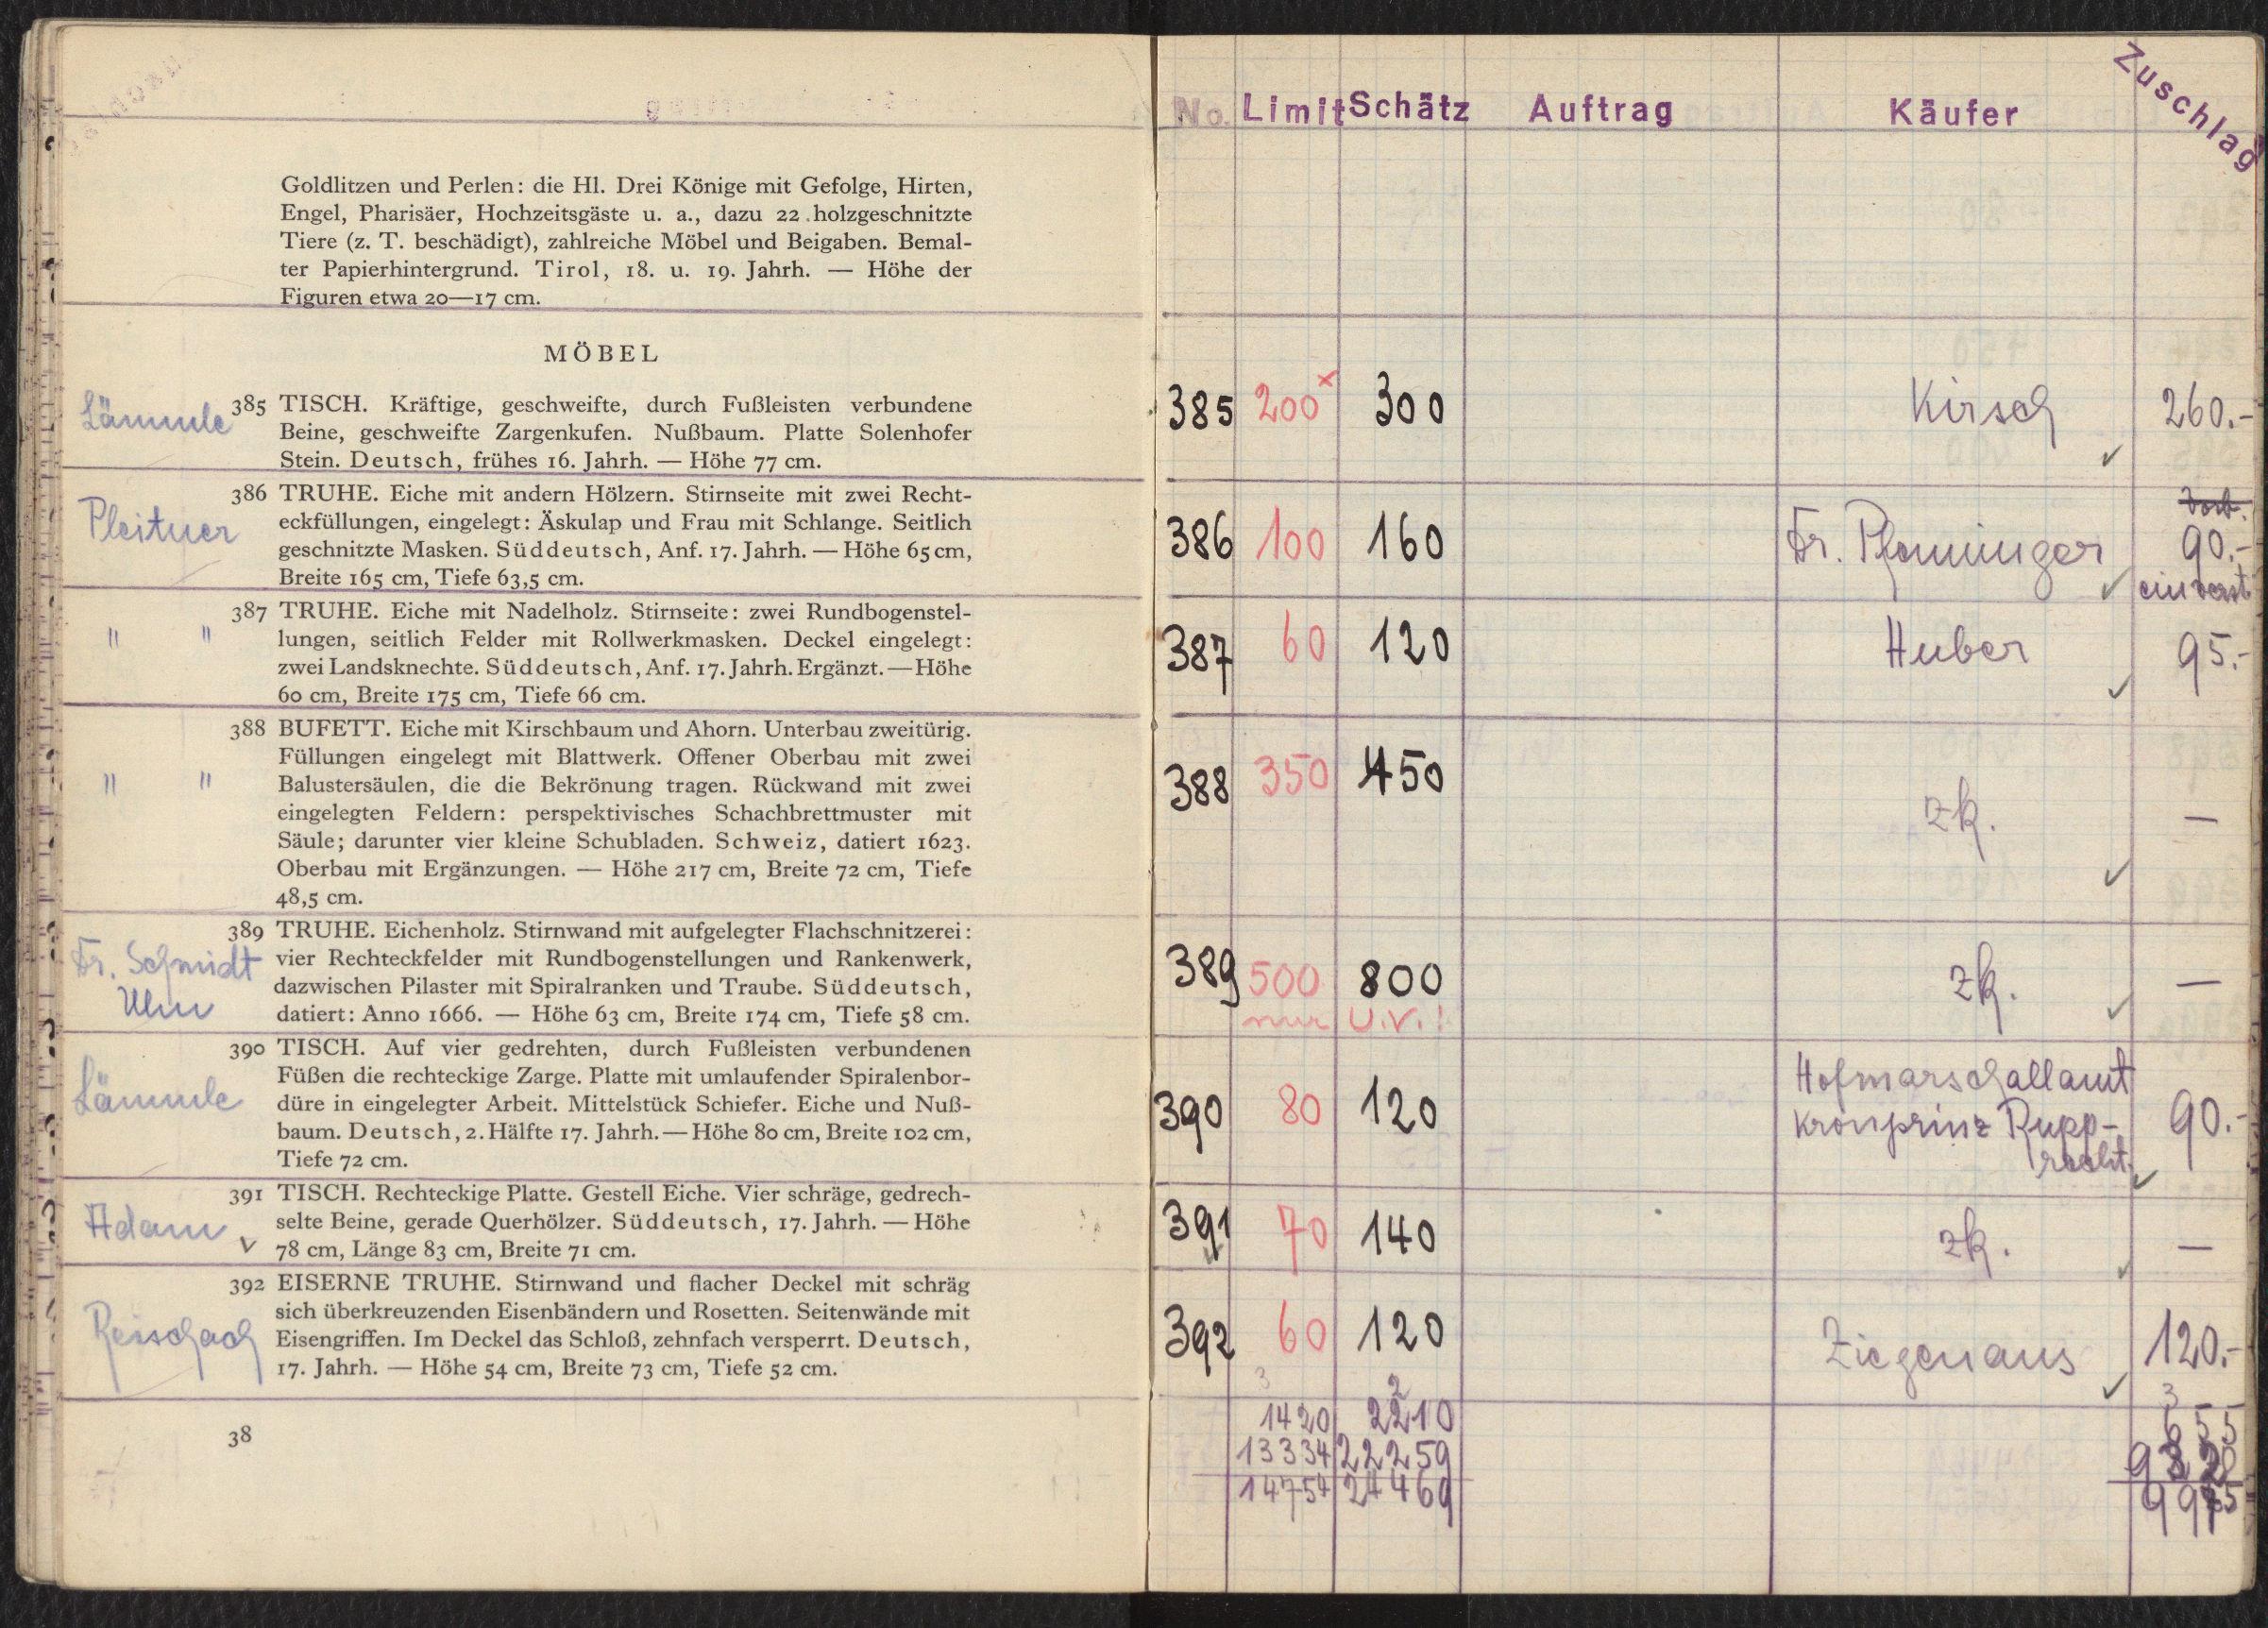 Goldlitzen und Perlen: die Hl. Drei Könige mit Gefolge, Hirten,
Engel, Pharisäer, Hochzeitsgäste u. a., dazu 22 holzgeschnitzte
Tiere (z. T. beschädigt), zahlreiche Möbel und Beigaben. Bemal-
ter Papierhintergrund. Tirol, 18. u. 19. Jahrh. — Höhe der
Figuren etwa 20—17 cm.
MÖBEL
Lämmle
385 TISCH. Kräftige, geschweifte, durch Fußleisten verbundene
Beine, geschweifte Zargenkufen. Nußbaum. Platte Solenhofer
Stein. Deutsch, frühes 16. Jahrh. — Höhe 77 cm.
Pleitner
386 TRUHE. Eiche mit andern Hölzern. Stirnseite mit zwei Recht-
eckfüllungen, eingelegt: Äskulap und Frau mit Schlange. Seitlich
geschnitzte Masken. Süddeutsch, Anf. 17. Jahrh. — Höhe 65 cm,
Breite 165 cm, Tiefe 63,5 cm.
" "
387 TRUHE. Eiche mit Nadelholz. Stirnseite: zwei Rundbogenstel-
lungen, seitlich Felder mit Rollwerkmasken. Deckel eingelegt:
zwei Landsknechte. Süddeutsch, Anf. 17. Jahrh. Ergänzt. — Höhe
60 cm, Breite 175 cm, Tiefe 66 cm.
" "
388 BUFETT. Eiche mit Kirschbaum und Ahorn. Unterbau zweitürig.
Füllungen eingelegt mit Blattwerk. Offener Oberbau mit zwei
Balustersäulen, die die Bekrönung tragen. Rückwand mit zwei
eingelegten Feldern: perspektivisches Schachbrettmuster mit
Säule; darunter vier kleine Schubladen. Schweiz, datiert 1623.
Oberbau mit Ergänzungen. — Höhe 217 cm, Breite 72 cm, Tiefe
48,5 cm.
Dr. Schmidt
Ulm
389 TRUHE. Eichenholz. Stirnwand mit aufgelegter Flachschnitzerei:
vier Rechteckfelder mit Rundbogenstellungen und Rankenwerk,
dazwischen Pilaster mit Spiralranken und Traube. Süddeutsch,
datiert: Anno 1666. — Höhe 63 cm, Breite 174 cm, Tiefe 58 cm.
Lämmle
390 TISCH. Auf vier gedrehten, durch Fußleisten verbundenen
Füßen die rechteckige Zarge. Platte mit umlaufender Spiralenbor-
düre in eingelegter Arbeit. Mittelstück Schiefer. Eiche und Nuß-
baum. Deutsch, 2. Hälfte 17. Jahrh. — Höhe 80 cm, Breite 102 cm,
Tiefe 72 cm.
Adam
391 TISCH. Rechteckige Platte. Gestell Eiche. Vier schräge, gedrech-
selte Beine, gerade Querhölzer. Süddeutsch, 17. Jahrh. — Höhe
78 cm, Länge 83 cm, Breite 71 cm.
Reischach
392 EISERNE TRUHE. Stirnwand und flacher Deckel mit schräg
sich überkreuzenden Eisenbändern und Rosetten. Seitenwände mit
Eisengriffen. Im Deckel das Schloß, zehnfach versperrt. Deutsch,
17. Jahrh. — Höhe 54 cm, Breite 73 cm, Tiefe 52 cm.
38
No. Limit Schätz Auftrag Käufer Zuschlag
385 200 x 300 Kirsch 260.-
386 100 160 Dr. Pfanninger 90.-
einverst
387 60 120 Huber 95.-
388 350 450 zk. —
389 500 800 zk. —
nur U.V.!
390 80 120 Hofmarschallamt
Kronprinz Rupp-
recht. 90.-
391 70 140 zk. —
392 60 120 Ziegenaus 120.-
3 2 3
1420 2210 655
13334 22259
14754 24469